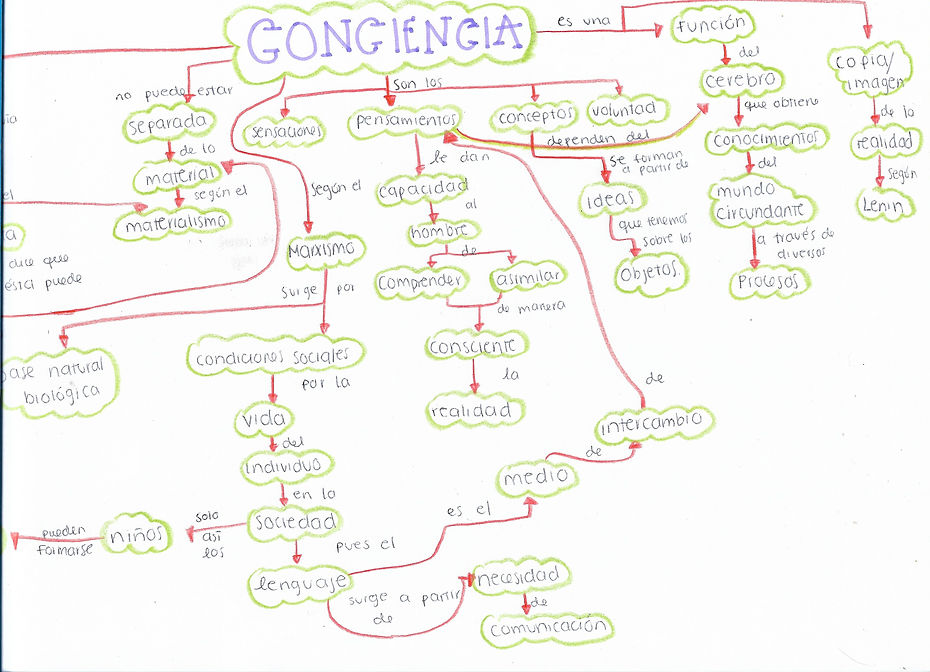 CONCIENCIA
es una
función
del
cerebro
que obtiene
conocimientos
del
mundo
circundante
a través de
diversos
Procesos
copia/
imagen
de la
realidad
según
Lenin
no puede estar
separada
de lo
material
según el
materialismo
son los
sensaciones
pensamientos
conceptos
voluntad
dependen del
le dan
capacidad
al
hombre
de
comprender
asimilar
de manera
consciente
la
realidad
se forman
a partir de
ideas
que tenemos
sobre los
Objetos.
según el
Marxismo
surge por
base natural
biológica
condiciones sociales
por la
vida
del
individuo
en la
sociedad
solo
así
los
niños
pueden
formarse
pues el
lenguaje
es el
medio
de
intercambio
de
surge a partir
de
necesidad
de
comunicación
ía
el
a
dice que
ésta puede